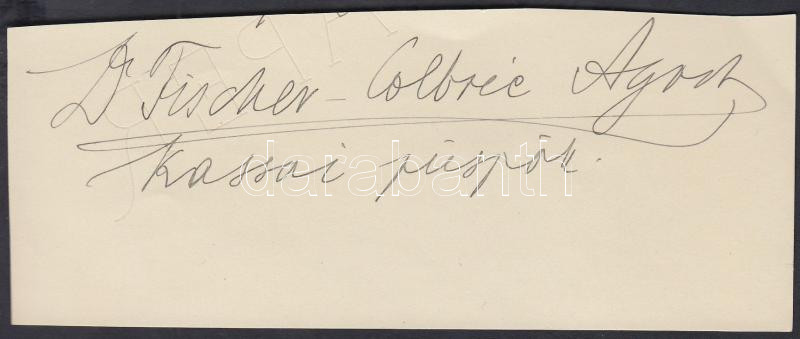 Dr Fischer-Colbrie Ágost
kassai püspök.
darabanth